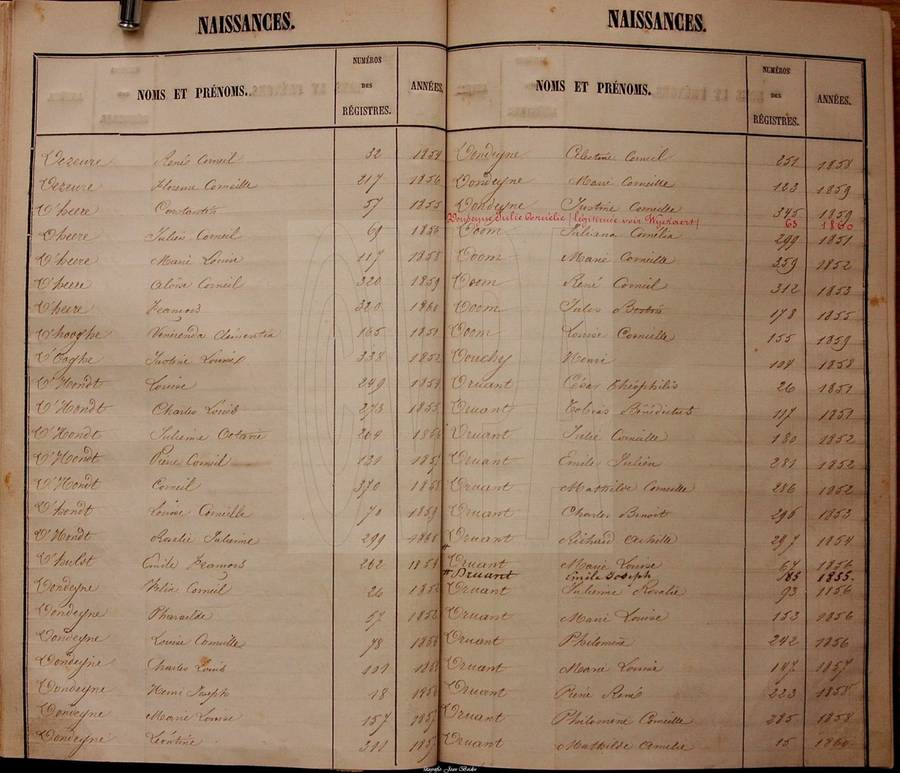 NAISSANCES.
NOMS ET PRÉNOMS. NUMÉROS DES RÉGISTRES. ANNÉES.
René Corneil 32 185
Florence Corneille 217 1856
D'heere Constantin 57 1855
D'heere Julien Corneil 69 1856
D'heere Marie Louise 117 1858
D'heere Aloïse Corneil 320 1859
D'heere François 320 1860
D'hooghe Venerenda Clementia 165 1851
Justine Louise 338 1852
D'Hondt Louise 249 185
D'Hondt Charles Louis 273 1855
D'Hondt Julienne Octavie 204 185
D'Hondt Pierre Corneil 131 185
D'Hondt Corneil 370 1858
D'hondt Louise Corneille 70 1859
D'Hondt Rosalie Julienne 299 1860
D'hulst Emile François 262 185
Dondeyne Félix Corneil 26 1852
Dondeyne Pharaïlde 57 1852
Dondeyne Louise Corneille 78 185
Dondeyne Charles Louis 101 185
Dondeyne Henri Joseph 18 185
Dondeyne Marie Louise 157 1857
Dondeyne Léontine 185
NAISSANCES.
NOMS ET PRÉNOMS. NUMÉROS DES RÉGISTRES. ANNÉES.
Dondeyne Célestine Corneil 251 1858
Dondeyne Marie Corneille 123 1859
Dondeyne Justine Corneille 345 1859
Dondeyne Julie Cornélie (légitimée voir Wyckaert) 63 1860
Doom Juliana Cornélia 299 1851
Doom Marie Corneille 359 1852
Doom René Corneil 312 1853
Doom Jules 178 1855
Doom Louise Corneille 155 1859
Douchy Henri 104 1858
Druant César Théophile 26 1851
Druant Tobias Bénédictus 117 1851
Druant Julie Corneille 180 1852
Druant Emile Julien 281 1852
Druant Mathilde Corneille 286 1852
Druant Charles Benoit 296 1853
Druant Richard Achille 297 1854
Druant Marie Louise 67 1856
# Druant Emile Joseph 185 1855.
Druant Julienne Rosalie 93 1856
Druant Marie Louise 153 1856
Druant Philomène 242 1856
Druant Marie Louise 147 1857
Druant Pierre René 223 1858
Druant Philomène Corneille 285 1858
Druant Mathilde Amelie 15 1860